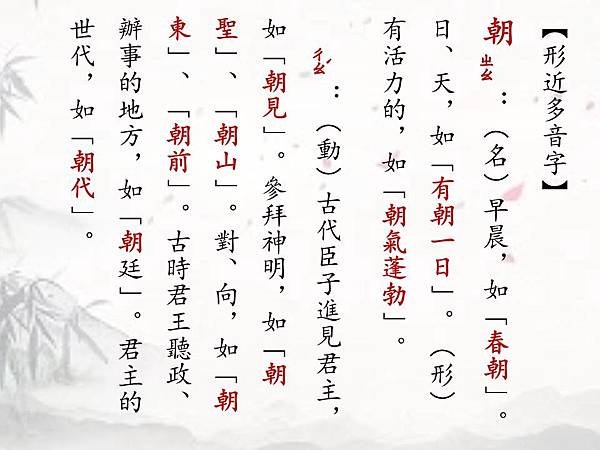 【形近多音字】
朝ㄓㄠ：（名）早晨，如「春朝」。
日、天，如「有朝一日」。（形）
有活力的，如「朝氣蓬勃」。
ㄔㄠˊ：（動）古代臣子進見君主，
如「朝見」。參拜神明，如「朝
聖」、「朝山」。對、向，如「朝
東」、「朝前」。古時君王聽政、
辦事的地方，如「朝廷」。君主的
世代，如「朝代」。